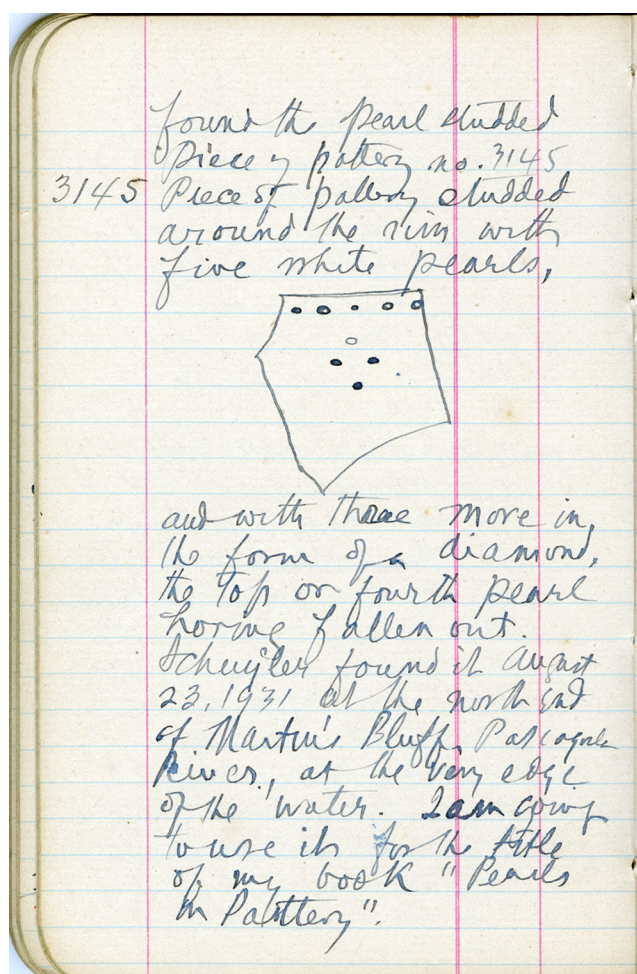 found the pearl studded
piece of pottery no. 3145
3145 Piece of pottery studded
around the rim with
five white pearls,
and with three more in
the form of a diamond,
the top or fourth pearl
having fallen out.
Schuyler found it August
23, 1931 at the north end
of Martin's Bluff, Pascagoula
River, at the very edge
of the water. I am going
to use it for the title
of my book "Pearls
in Pottery".